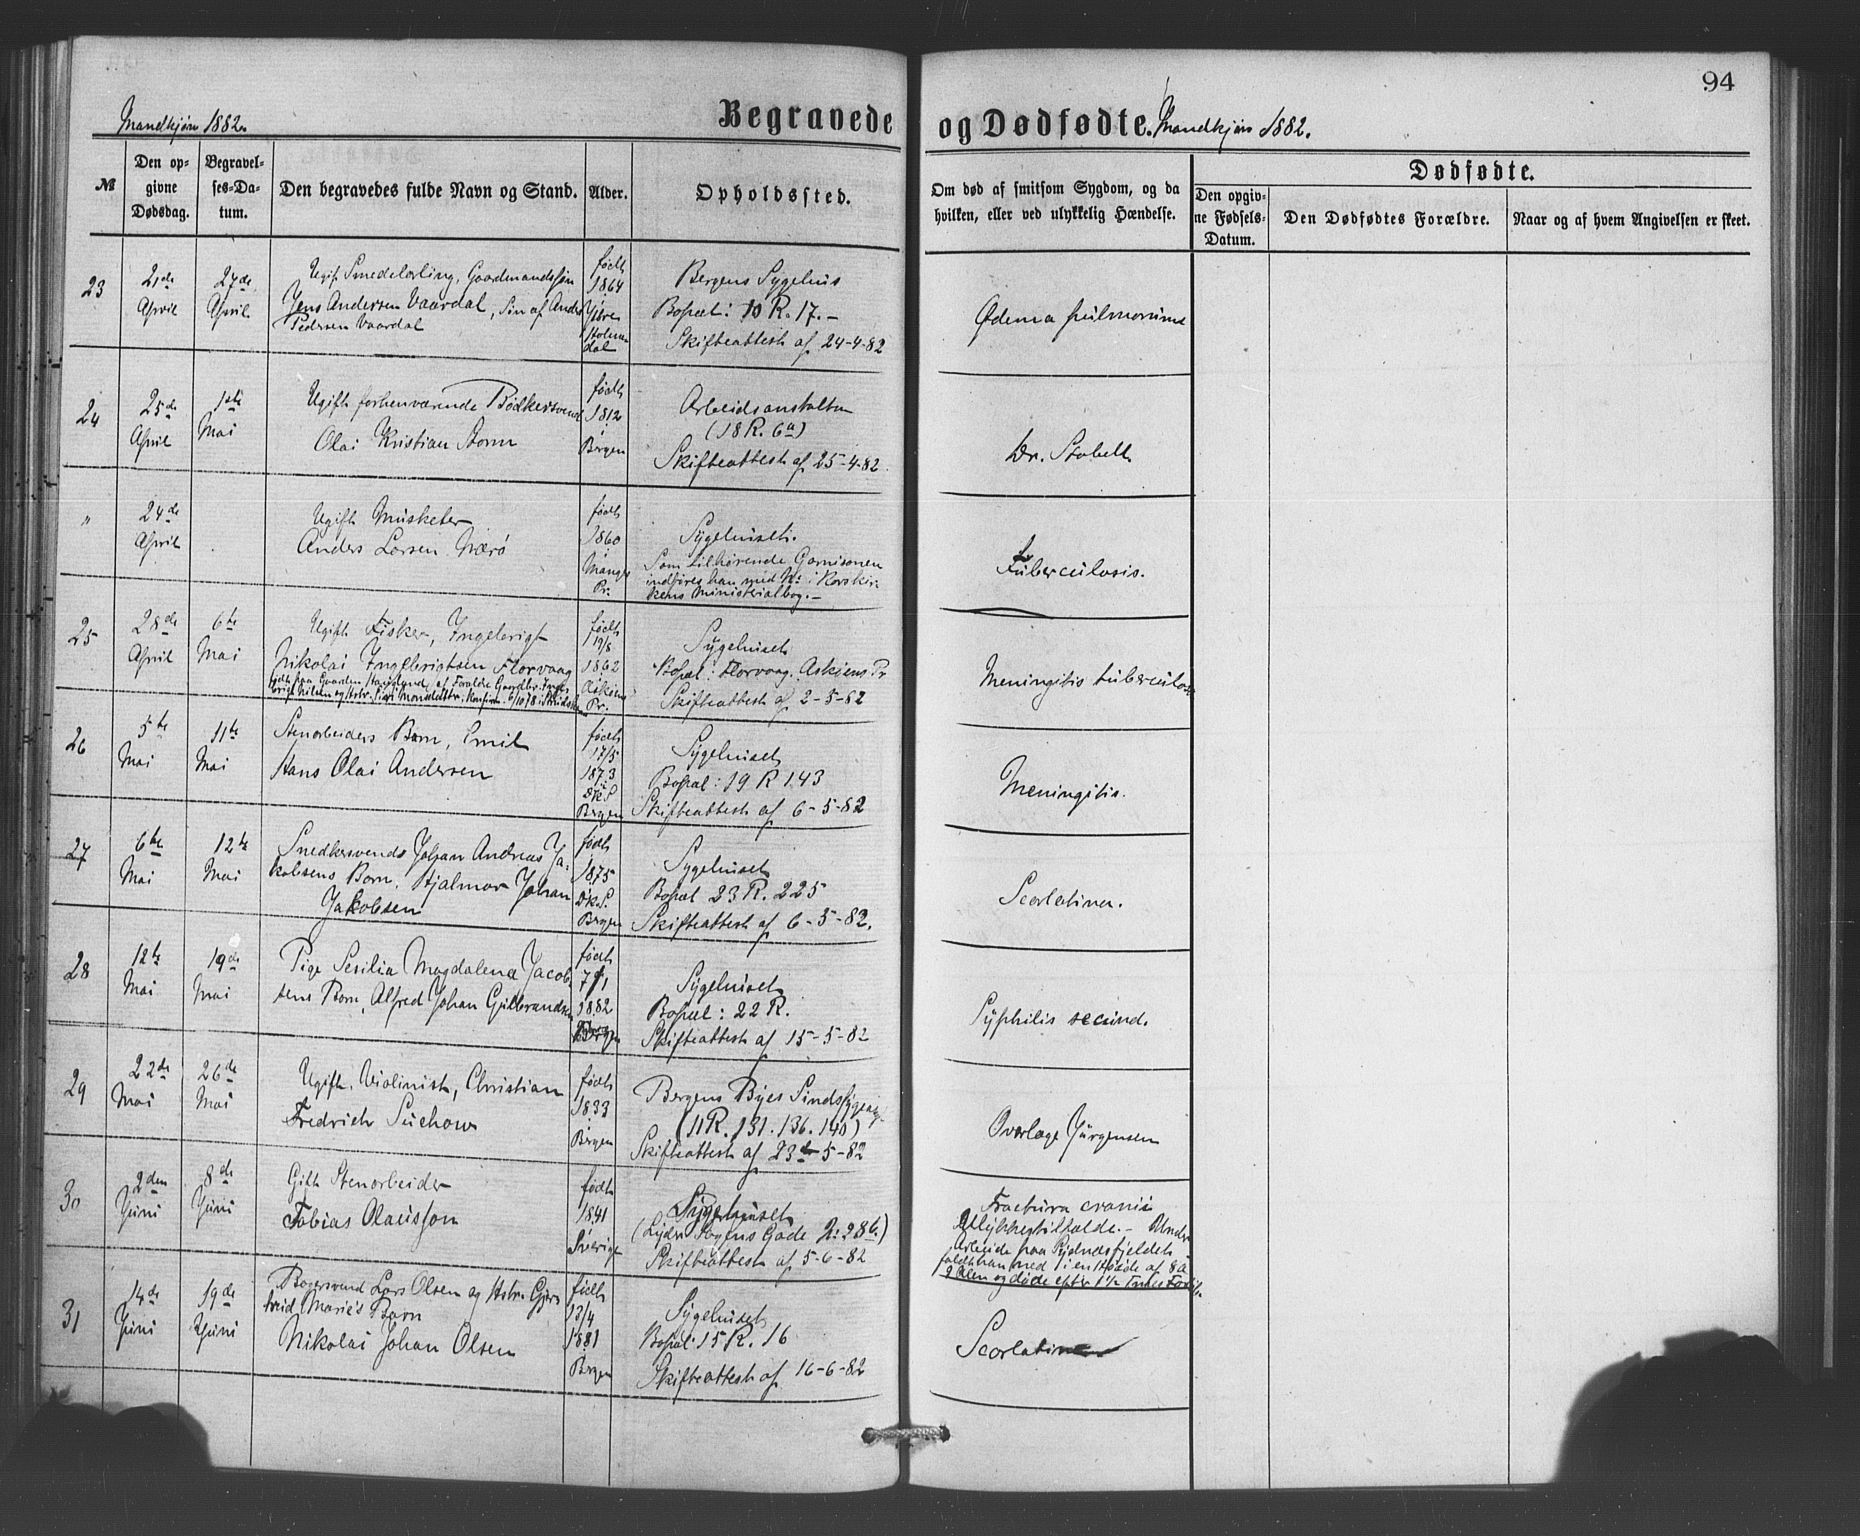 94
Mandkjøn 1882.
Begravede
og Dødfødte.
Mandkjøn 1882.
№
Den op-
givne
Dødsdag.
Begravel-
ses-Da-
tum.
Den begravedes fulde Navn og Stand.
Alder.
Opholdssted.
Om død af smitsom Sygdom, og da
hvilken, eller ved ulykkelig Hændelse.
Dødfødte.
Den opgiv-
ne Fødsels-
Datum.
Den Dødfødtes Forældre.
Naar og af hvem Angivelsen er skeet.
23
21de
April
27de
April
Ugift Smedelærling, Gaardmandssøn
Jens Andersen Vaardal, Søn af Anders
Pedersen Vaardal
født
1864
i
Holmedal
Bergens Sygehus
Bopæl: 10 R. 17. -
Skifteattest af 24-4-82
Ødema pulmonum
24
25de
April
1ste
Mai
Ugift forhenværende Bødkersvend
Olai Kristian Storm
født
1812
i
Bergen
Arbeidsanstalten
(18 R. 6a)
Skifteattest af 25-4-82.
Dr. Stabell
"
24de
April
Ugift Musketer
Anders Larsen Nærø
født
1860
i
Manger
Pr.
Sygehuset.
Som tilhørende Garnisonen
indføres han med No i Korskir-
kens Ministerialbog. -
Tuberculosis.
25
28de
April
6te
Mai
Ugift Fisker, Ingebrigt
Nikolai Ingebrigtsen Florvaag
født
19/8
1862
Askøens
Pr.
Sygehuset
Bopæl: Florvaag, Askøens Pr
Skifteattest af 2-5-82
Meningitis tuberculosa
26
5te
Mai
11te
Mai
Stenarbeiders Barn, Emil
Hans Olai Andersen
født
17/5
1873
i
DK.S
Bergen
Sygehuset
Bopæl: 19 R 143
Skifteattest af 6-5-82
Meningitis.
27
6te
Mai
12te
Mai
Snedkersvends Johan Andreas Ja-
kobsens Barn, Hjalmar Johan
Jakobsen
født
1875
DK.S.
Bergen
Sygehuset
Bopæl 23 R. 225
Skifteattest af 6-5-82.
Scarlatina.
28
12te
Mai
19de
Mai
Pige Sesilia Magdalena Jacob-
sens Barn, Alfred Johan Gulbrandsen
født
7/1
1882
Bergen
Sygehuset
Bopæl: 22 R.
Skifteattest af 15-5-82
Syphilis secund.
29
22de
Mai
26de
Mai
Ugift Violinist, Christian
Fredrich Suchow
født
1833
i
Bergen
Bergens Byes Sindssygeasyl
(11 R. 131. 136. 140)
Skifteattest af 23de-5-82
Overlæge Jürgensen
30
2den
Juni
8de
Juni
Gift Stenarbeider
Tobias Olausson
født
1841
i
Sverige
Sygehuset
(Lyder Sagens Gade No 28b.)
Skifteattest af 5-6-82
Fractura cranii
Ulykkestilfælde. - Under
Arbeide paa Rydnæsfjeldet
faldt han ned i en Høide af 8 a
9 Alen og døde efter 1½ Times Forløb.
31
14de
Juni
19de
Juni
Bagersvend Lars Olsen og Hstru Gjer-
trud Marie's Barn
Nikolai Johan Olsen
født
13/4
1881
i
Bergen
Sygehuset
Bopæl: 15 R. 16
Skifteattest af 16-6-82
Scarlatina